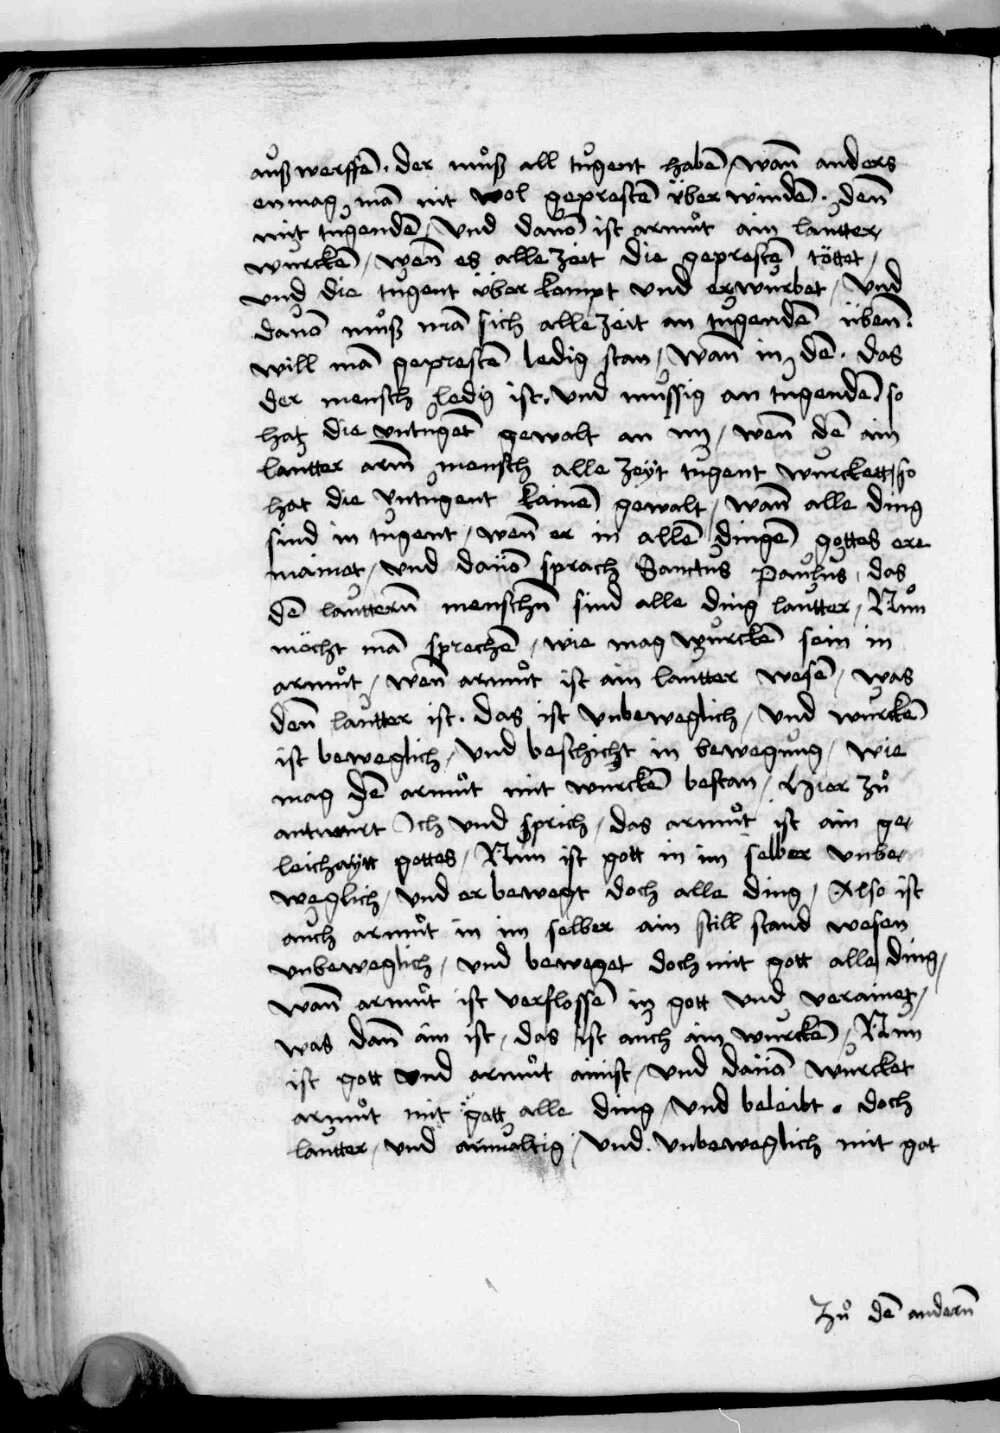 auß werffē · der mů̊ß all tugent habē / wan̄ anders
enmag mā nit wol geprestē über windē · den̄
mit tugendē / Vnd dauō ist armůt ain lautter
würckē / wen̄ es alle zeit die geprestē töttet /
vnd die tugent über kompt vnd erwürbet / Vnd
dauō můß mā sich alle zeit an tugendē übēn
will mā geprestē ledig stan / wan̄ in dē · das
der mensch ledig ist · vnd müssig an tugendē so
hat die vntugēt gewalt an im / wen̄ dē ain
lautter arm̄ mensch alle zeÿt tugent würckett / so
hat die vntugent kainē gewalt / wan̄ alle ding
sind in tugent / wen̄ er in allē dingē gottes ere
mainet / vnd dauō sprach Sanctus paulus / das
dē lauttern̄ menschn̄ sind alle ding lautter / Nůn
möcht mā sprechē / wie mag würckē sein in
armůt / wen̄ armůt ist ain lautter wesē / was
den̄ lautter ist · das ist vnbeweglich / vnd würckē
ist beweglich / vnd beschicht in bewegung / wie
mag dē armůt mit würckē bestan / Hier zů
antwurt Ich vnd sprich / das armůt ist ain ge/
leichaÿtt gottes / Nun ist gott in im selber vnbe/
weglich / vnd er bewegt doch alle ding / Also ist
auch armůt in im selber ain still stand wesen
vnbeweglich / vnd beweget doch mit gott alle ding /
wan̄ armůt ist verflossē in gott vnd verainet /
was dan̄ ain ist / das ist auch ain würckē / Nun
ist gott vnd armůt ainist / vnd dauō würcket
armůt mit gott alle ding / vnd beleibt · doch
lautter / vnd ainualtig / vnd · vnbeweglich mit got
Zů dē andern̄